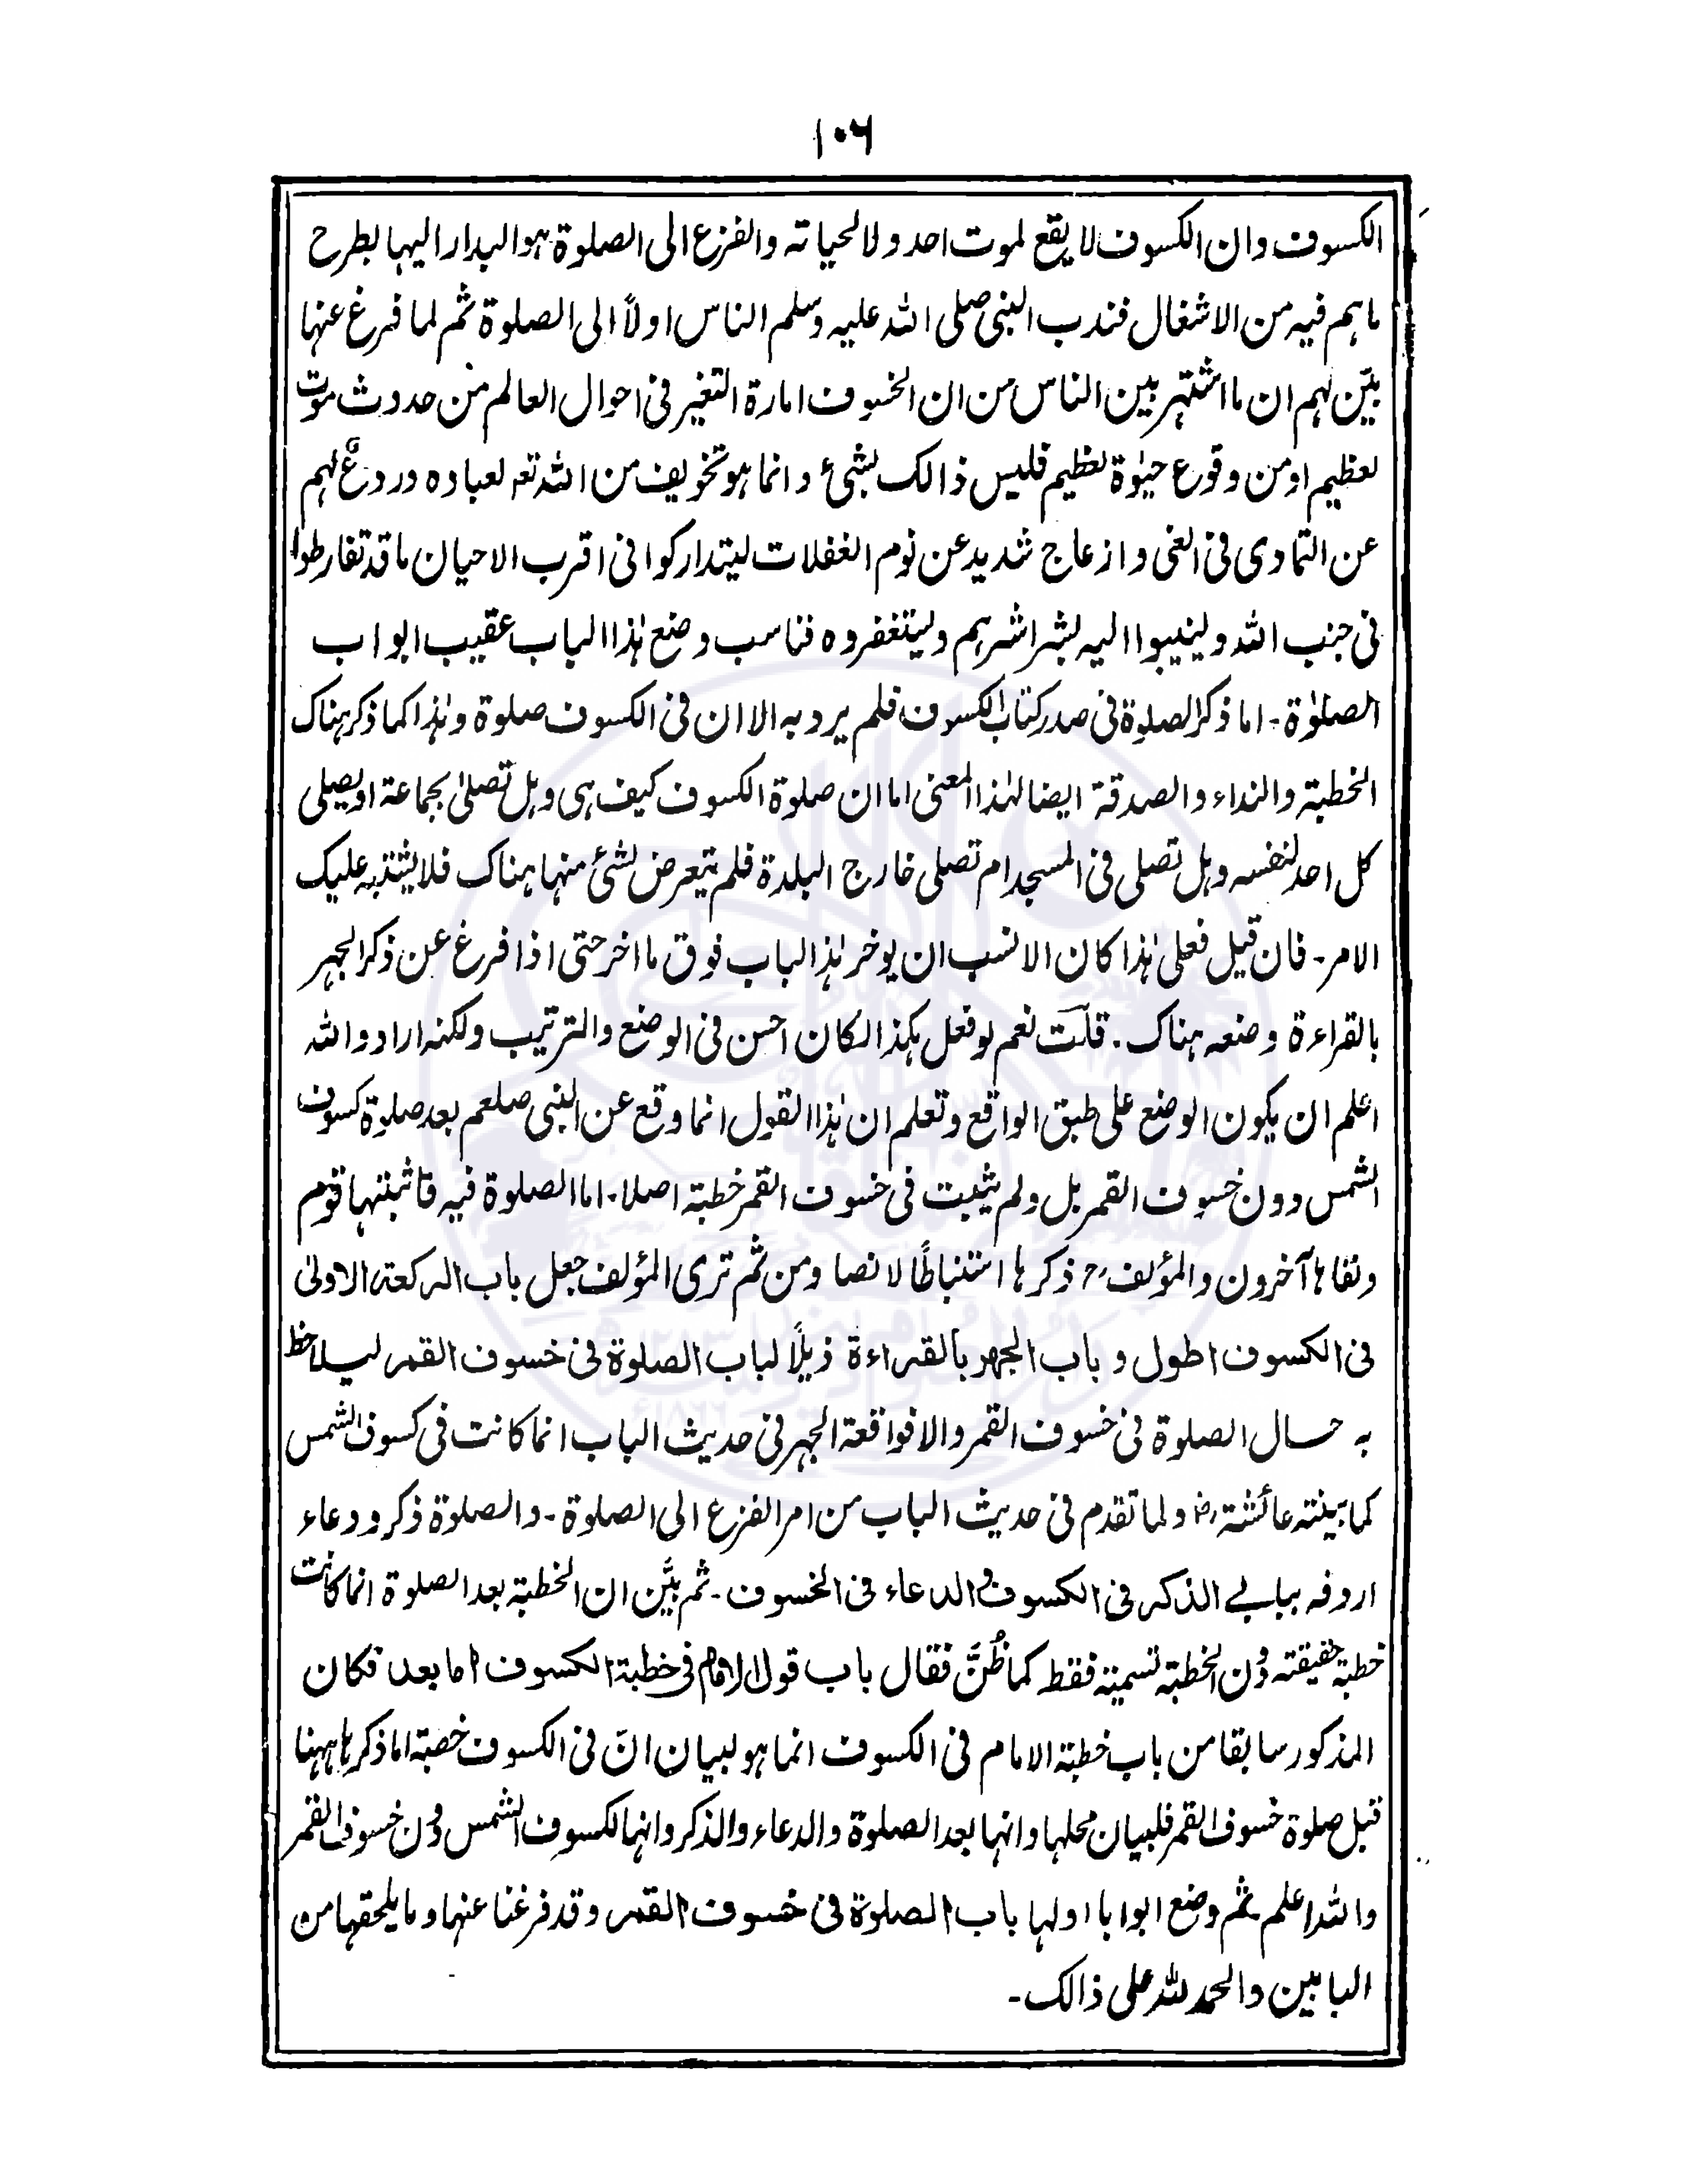 ۱۰۶
الكسوف وان الكسوف لا يقع لموت احد ولا لحياته والفزع الى الصلوة هو البدار اليها بطرح
ما هم فيه من الاشغال فندب النبى صلى الله عليه وسلم الناس اولاً الى الصلوة ثم لما فرغ عنها
بيّن لهم ان ما اشتهر بين الناس من ان الخسوف امارة التغير فى احوال العالم من حدوث موت
لعظيم او من وقوع حيٰوة لعظيم فليس ذالك بشئ وانما هو تخويف من الله تعه لعباده وردعٌ لهم
عن التمادى فى الغى وازعاج شديد عن نوم الغفلات ليتداركوا فى اقرب الاحيان ما قد تفارطوا
فى جنب الله ولينيبوا اليه بشراشرهم وليتغفروه فناسب وضع هٰذا الباب عقيب ابواب
الصلوٰة - اما ذكر الصلوة فى صدر كتاب الكسوف فلم يرد به الا ان فى الكسوف صلوة وهٰذا كما ذكر هناك
الخطبة والنداء والصدقة ايضا لهٰذا المعنى اما ان صلوة الكسوف كيف هى وهل تصلىٰ بجماعة او يصلى
كل احد لنفسه وهل تصلى فى المسجد ام تصلى خارج البلدة فلم يتعرض لشئ منها هناك فلا يشتبه عليك
الامر - فان قيل فعلى هٰذا كان الانسب ان يوخر هٰذا الباب فوق ما اخر حتى اذا فرغ عن ذكر الجهر
بالقراءة وضعه هناك . قلت نعم لو فعل هكذا لكان احسن فى الوضع والترتيب ولكنه اراد والله
اعلم ان يكون الوضع على طبق الواقع وتعلم ان هٰذا القول انما وقع عن النبى صلعم بعد صلوة كسوف
الشمس دون خسوف القمر بل ولم يثبت فى خسوف القمر خطبة اصلا . اما الصلوة فيه فاثبتها قوم
ونفاها آخرون والمؤلف رح ذكرها استنباطًا لا نصا ومن ثم ترى المؤلف جعل باب الركعة الاولىٰ
فى الكسوف اطول وباب الجهر بالقراءة ذيلًا لباب الصلوة فى خسوف القمر ليلاحظ
به حال الصلوة فى خسوف القمر والا فواقعة الجهر فى حديث الباب انما كانت فى كسوف الشمس
كما بينته عائشة رض ولما تقدم فى حديث الباب من امر الفزع الى الصلوة - والصلوة ذكر ودعاء
اردفه ببابے الذكر فى الكسوف والدعاء فى الخسوف - ثم بيَّن ان الخطبة بعد الصلوة انما كانت
خطبة حقيقته دون الخطبة تسمية فقط كما ظُنَّ فقال باب قول الامام فى خطبة الكسوف اما بعد فكان
المذكور سابقا من باب خطبة الامام فى الكسوف انما هو لبيان انّ فى الكسوف خصبة اما ذكرها ههنا
قبل صلوة خسوف القمر فلبيان محلها وانها بعد الصلوة والدعاء والذكر وانها لكسوف الشمس دون خسوف القمر
والله اعلم ثم وضع ابوابا اولها باب الصلوة فى خسوف القمر وقد فرغنا عنها وما يلحقها من
البابين والحمد لله على ذالك -